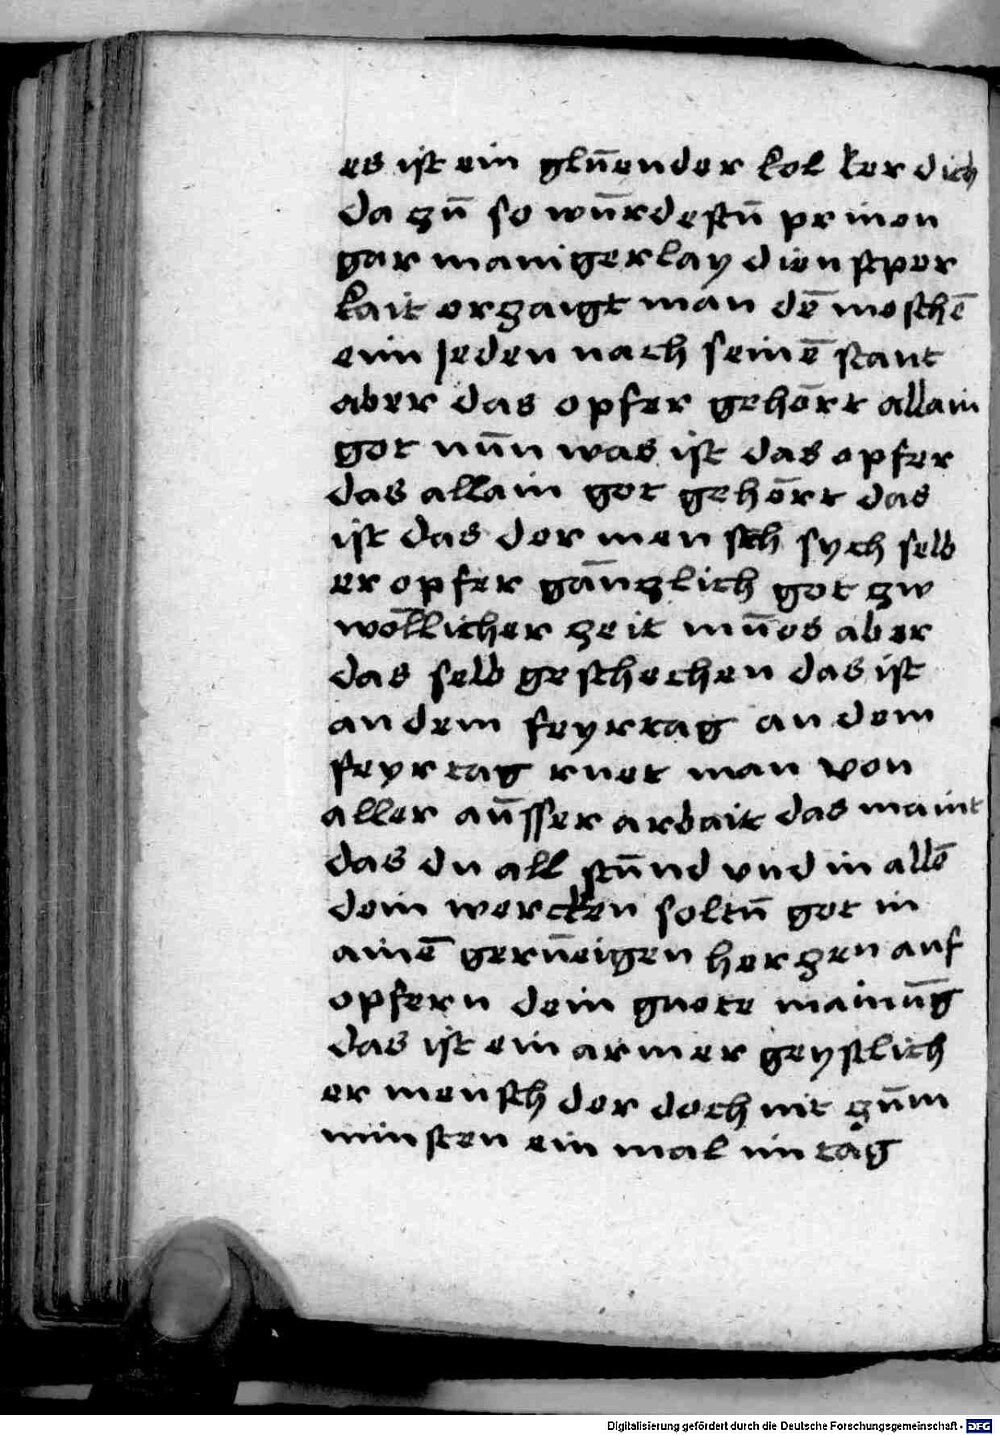 es ist ein glūender kol ker dich
da zū so wūrdestū prinen
gar manigerlay dienstper
kait erzaigt man dē meschē
eim jeden nach seinē stant
aber das opfer gehōrt allain
got nūn was ist das opfer
das allain got gehōrt das
ist das der mensch sych selb
er opfer gānzlich got zw
wōllicher zeit mūes aber
das selb geschechen das ist
an dem feyrtag an dem
feyrtag ruet man von
aller aūsser arbait das maint
das du all stūnd vnd in allē
dein wercken soltū got in
ainē gerūeigen herzen auf
opfern dein guote mainūg
das ist ein armer geystlich
er mensch der doch nit zūm
minsten ein mal im tag
Digitalisierung gefördert durch die Deutsche Forschungsgemeinschaft - DFG